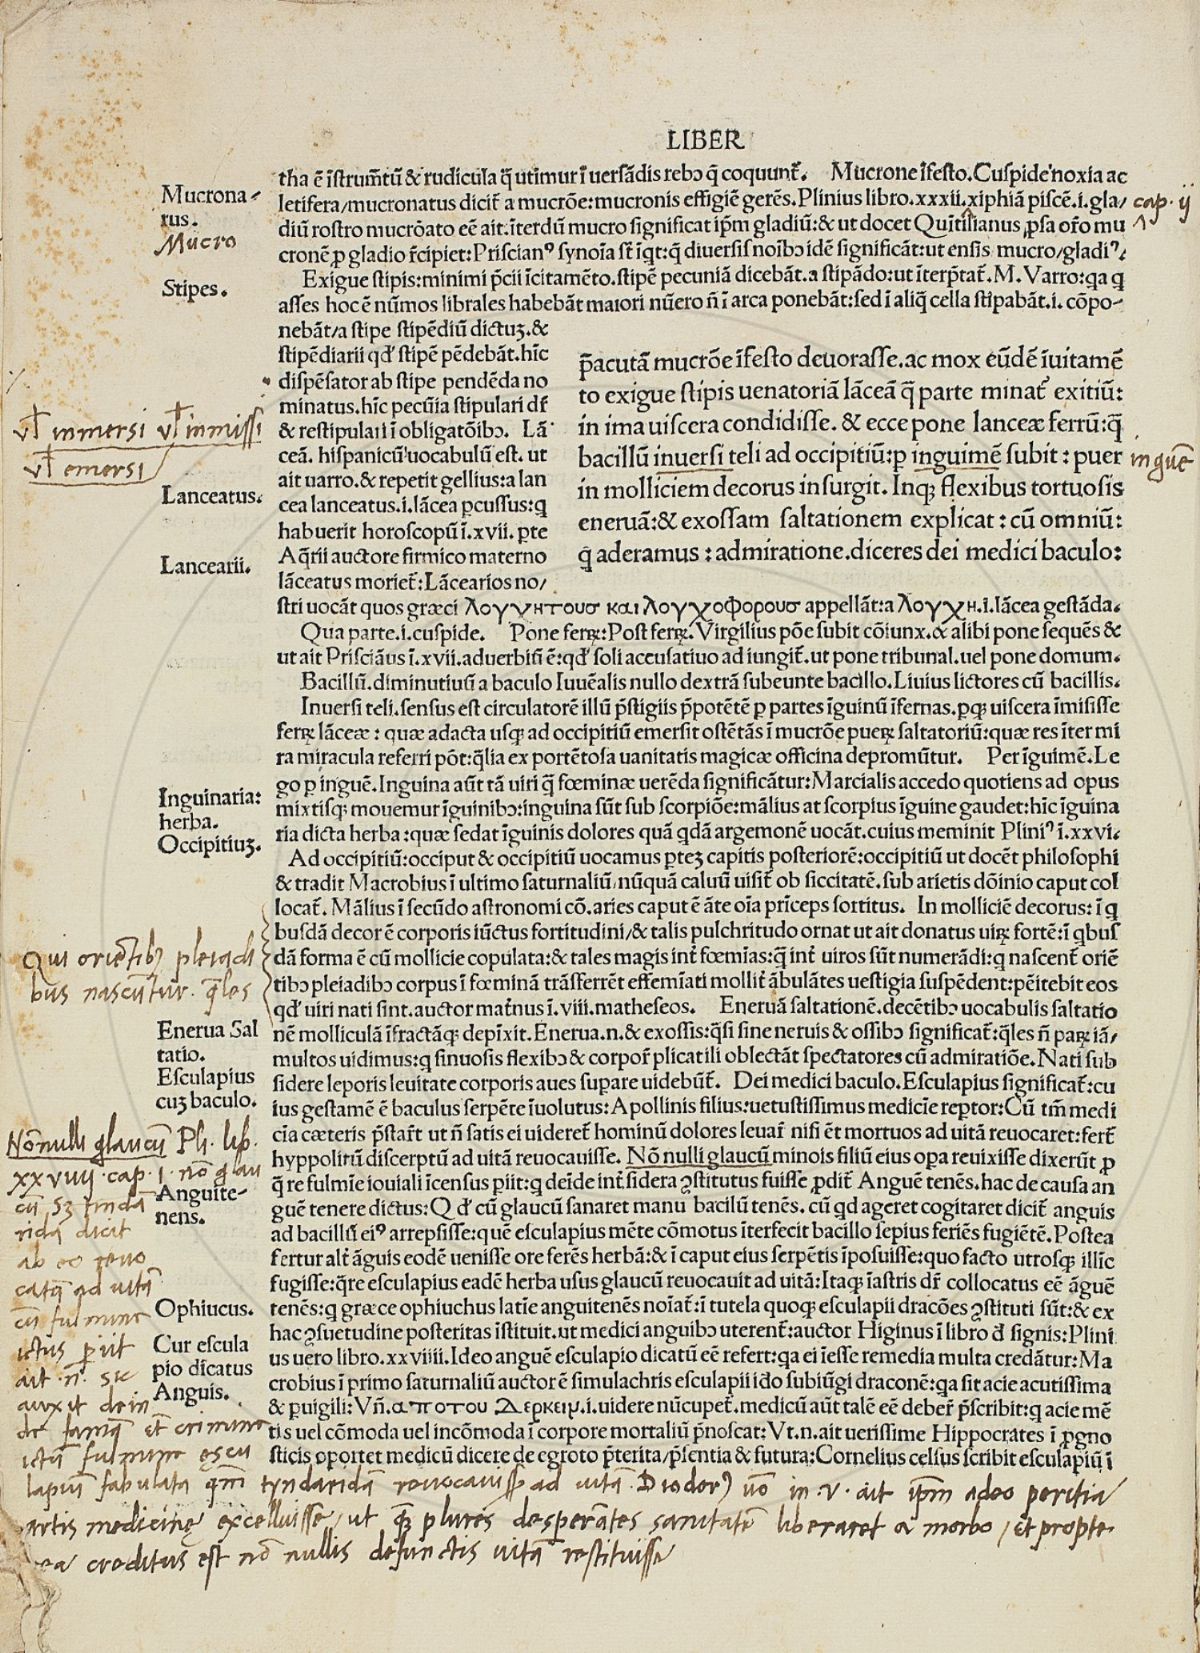 LIBER
tha ē īstrum̄tū & rudicula q̄ utimur ī uersādis rebꝯ q̄ coquunt̄. Mucrone īfesto. Cuspide noxia ac
letifera/mucronatus dicit̄ a mucrōe: mucronis effigiē gerēs. Plinius libro.xxxii. xiphiā piscē.i.gla/
diū rostro mucrōato eē ait: īterdū mucro significat ip̄m gladiū: & ut docet Quītilianus
cronē ꝓ gladio
Exigue stipis: minimi p̄cii īcitamēto. stipē pecuniā dicebāt. a stipādo: ut īterp̄tat̄. M. Varro: qa q
asses hoc ē nūmos librales habebāt maiori nūero n̄ ī arca ponebāt: sed ī aliq̄ cella stipabāt.i. cōpo-
nebāt/a stipe stipēdiū dictuꝫ. &
stipēdiarii qđ stipē pēdebāt. hīc
dispēsator ab stipe pendēda no
minatus. hīc pecūia stipulari dr̄
& restipulari ī obligatōibꝯ. Lā
ceā. hispanicū uocabulū est. ut
ait uarro. & repetit gellius: a lan
cea lanceatus.i. lācea ꝑcussus: q
habuerit horoscopū ī.xvii. ꝑte
Aq̄rii auctore firmico materno
lāceatus moriet̄: Lācearios no/
p̄acutā mucrōe īfesto deuorasse. ac mox eūdē īuitamē
to exigue stipis uenatoriā lāceā q̄ parte minat̄ exitiū:
in ima uiscera condidisse. & ecce pone lanceæ ferrū: q̄
bacillū inuersi teli ad occipitiū: ꝑ inguimē subit: puer
in molliciem decorus insurgit. Inqꝫ flexibus tortuosis
eneruā: & exossam saltationem explicat: cū omniū:
q̄ aderamus: admiratione. diceres dei medici baculo:
stri uocāt quos græci λογχητουσ και λογχοφορουσ appellāt: a λογχη.i. lācea gestāda.
Qua parte.i. cuspide. Pone ferꝝ: Post ferꝝ. Virgilius pōe subit cōiunx. & alibi pone sequēs &
ut ait Prisciāus ī.xvii. aduerbiū ē: qđ soli accusatiuo ad iungit̄. ut pone tribunal. uel pone domum.
Bacillū. diminutiuū a baculo Iuuēalis nullo dextrā subeunte bacillo. Liuius lictores cū bacillis.
Inuersi teli. sensus est circulatorē illū p̄stigiis p̄potētē ꝑ partes īguinū īfernas. ꝑqꝫ uiscera īmisisse
ferꝝ lāceæ: quæ adacta usqꝫ ad occipitiū emersit ostētās ī mucrōe pueꝝ saltatoriū: quæ res iter mi
ra miracula referri pōt: q̄lia ex portētosa uanitatis magicæ officina depromūtur. Per īguimē. Le
go ꝑ inguē. Inguina aūt tā uiri q̄ fœminæ uerēda significātur: Marcialis accedo quotiens ad opus
mixtisqꝫ mouemur īguinibꝯ: inguina sūt sub scorpiōe: mālius at scorpius īguine gaudet: hīc īguina
ria dicta herba: quæ sedat īguinis dolores quā qdā argemonē uocāt. cuius meminit Pliniꝰ ī.xxvi.
Ad occipitiū: occiput & occipitiū uocamus ꝑteꝫ capitis posteriorē: occipitiū ut docēt philosophi
& tradit Macrobius ī ultimo saturnaliū/nūquā caluū uisit̄ ob siccitatē. sub arietis dōinio caput col
locat̄. Mālius ī secūdo astronomi cō. aries caput ē āte oīa prīceps sortitus. In molliciē decorus: ī q
busdā decor ē corporis iūctus fortitudini/& talis pulchritudo ornat ut ait donatus uiꝝ fortē: ī qbus
dā forma ē cū mollicie copulata: & tales magis int̄ fœmias: q̄ int̄ uiros sūt numerādi: q nascent̄ oriē
tibꝯ pleiadibꝯ corpus ī fœminā trāsferrēt effemiati mollit̄ ābulātes uestigia suspēdent: pēitebit eos
qđ uiri nati sint. auctor mat̄nus ī.viii. matheseos. Eneruā saltationē. decētibꝯ uocabulis saltatio
nē molliculā īfractāqꝫ depīxit. Enerua.n. & exossis: q̄si sine neruis & ossibꝯ significat̄: q̄les n̄ paꝝ iā/
multos uidimus: q sinuosis flexibꝯ & corpor̄ plicatili oblectāt spectatores cū admiratiōe. Nati sub
sidere leporis leuitate corporis aues supare uidebūt̄. Dei medici baculo. Esculapius significat̄: cu
ius gestamē ē baculus serpēte īuolutus: Apollinis filius: uetustissimus medicīe reptor: Cū tm̄ medi
cīa cæteris p̄star̄t ut n̄ satis ei uideret̄ hominū dolores leuar̄ nisi ēt mortuos ad uitā reuocaret: fert̄
hyppolitū discerptū ad uitā reuocauisse. Nō nulli glaucū minois filiū eius opa reuixisse dixerūt ꝓ
q̄ re fulmīe iouiali īcensus ꝑiit: q deīde int̄ sidera ꝯstitutus fuisse ꝓdit̄. Anguē tenēs. hac de causa an
guē tenere dictus: Qđ cū glaucū sanaret manu bacilū tenēs. cū qd ageret cogitaret dicit̄ anguis
ad bacillū eiꝰ arrepsisse: quē esculapius mēte cōmotus īterfecit bacillo sepius feriēs fugiētē. Postea
fertur alt̄ āguis eodē uenisse ore ferēs herbā: & ī caput eius serpētis īposuisse: quo facto utrosqꝫ illīc
fugisse: q̄re esculapius eadē herba usus glaucū reuocauit ad uitā: Itaqꝫ īastris dr̄ collocatus eē āguē
tenēs: q græce ophiuchus latīe anguitenēs noīat̄: ī tutela quoqꝫ esculapii dracōes ꝯstituti sūt: & ex
hac ꝯsuetudine posteritas īstituit. ut medici anguibꝯ uterent̄: auctor Higinus ī libro đ signis: Plini
us uero libro.xxviiii. Ideo anguē esculapio dicatū eē refert: qa ei īesse remedia multa credātur: Ma
crobius ī primo saturnaliū auctor ē simulachris esculapii idꝯ subiūgi draconē: qa sit acie acutissima
& puigili: Vn̄. αποτου δερκειν.i. uidere nūcupet̄. medicū aūt talē eē deber̄ p̄scribit: q acie mē
tis uel cōmoda uel incōmoda ī corpore mortaliū p̄noscat: Vt.n. ait uerissime Hippocrates ī pgno
sticis oportet medicū dicere de egroto p̄terita/p̄sentia & futura: Cornelius celsius scribit esculapiū ī
Mucrona-
rus.
Mucro
Stipes.
Lanceatus.
Lancearii.
Inguinaria:
herba.
Occipitiuꝫ.
Enerua Sal
tatio.
Esculapius
cuꝫ baculo.
Anguite-
nens.
Ophiucus.
Cur escula
pio dicatus
Anguis.
cap. ij
inguē
vl̄ inmersi vl̄ inmissi
vl̄ emersi
Qui oriētibꝫ pleiadi
bus nascūtur. q̄les
Nōnulli glaucū Pli. lib.
xxviiij cap. i. nō glau
cū sꝫ tindā
ridā dicit
ab eo reuo
catū ad uitā
cū fulmine
ictus periit
ait n. sic
auxit dein
de famā et crimine
ictū fulmine escu
lapium fabulata qm̄ tyndaridā reuocauisset ad uitā. Diodorꝰ uō in .v. ait ip̄m adeo peritia
artis medicinę excelluisse, ut plures desperātes sanitatē liberaret a morbo, et propte
rea creditus est nō nullis defunctis uitā restituisse